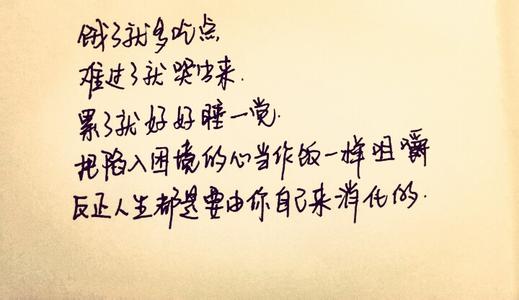 饿了就多吃点，
难过了就哭出来.
累了就好好睡一觉.
把陷入困境的心当作饭一样咀嚼
反正人生都是要由你自己来消化的.